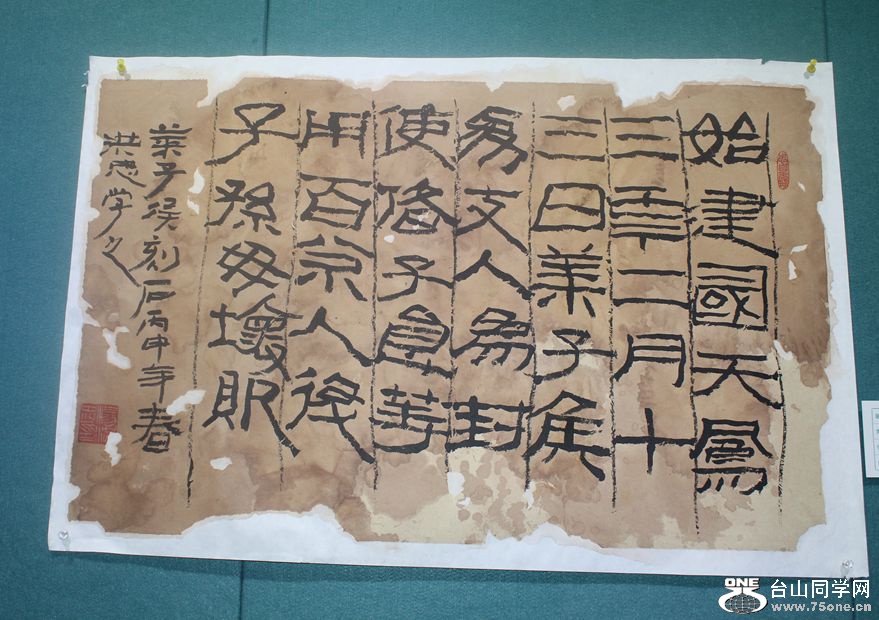 始建國天鳳
三年二月十
三日莱子侯
為支人為封
使偖子食等
用百余人後
子孫毋壞敗
莱子侯刻石丙申年春
洪忠学之
ONE
台山同学网
www.75one.cn